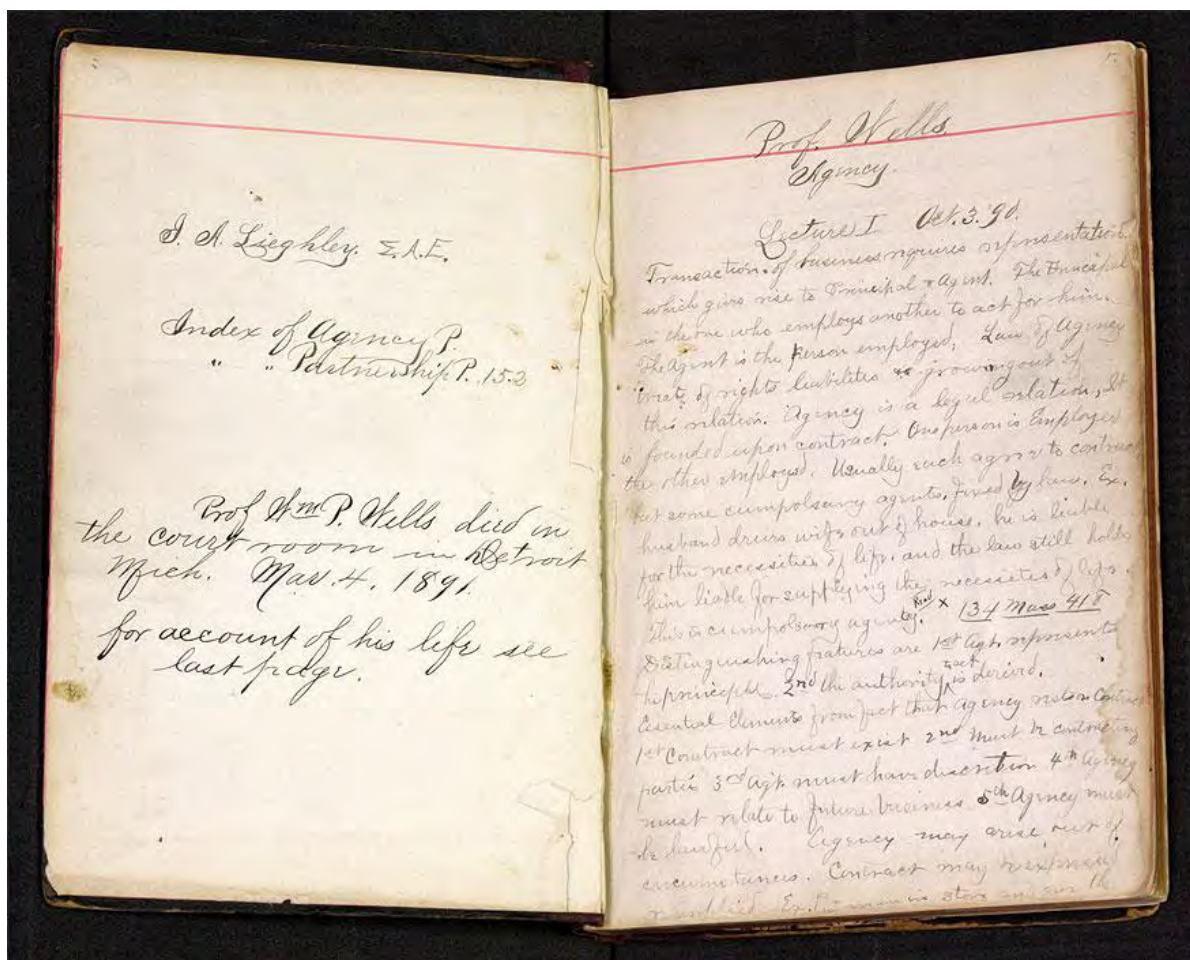 I. A. Lieghley. Σ.A.E.
Index of Agency P.
" " Partnership P. 152
Prof Wm P. Wells died in
the court room in Detroit
Mich. Mar. 4, 1891.
for account of his life see
last page.
Prof. Wells
Agency.
Lecture I Oct. 3. 90.
Transaction of business requires representation
which gives rise to Principal & Agent. The Principal
is the one who employs another to act for him.
The Agent is the person employed; Law of Agency
treats of rights liabilities growing out of
this relation. Agency is a legal relation, It
is founded upon contract. One person is Employer
the other employed. Usually each agree to contract
but some cumpolsary agents, fixed by law. Ex.
husband drives wife out of house, he is liable
for the necessities of life. and the law still holds
him liable for supplying the necessities of life.
This is cumpolsary agency. Read x 134 Mass 418
Distinguishing features are 1st Agt. represents
his principle. 2nd the authority is derived.
Essential Elements from fact that Agency rests on Contract
1st Contract must exist 2nd Must be contracting
parties 3rd Agt. must have discretion 4th Agency
must relate to future business 5th Agency must
be lawful. Agency may arise out of
circumstances. Contract may be expressed
or implied. Ex. man in store